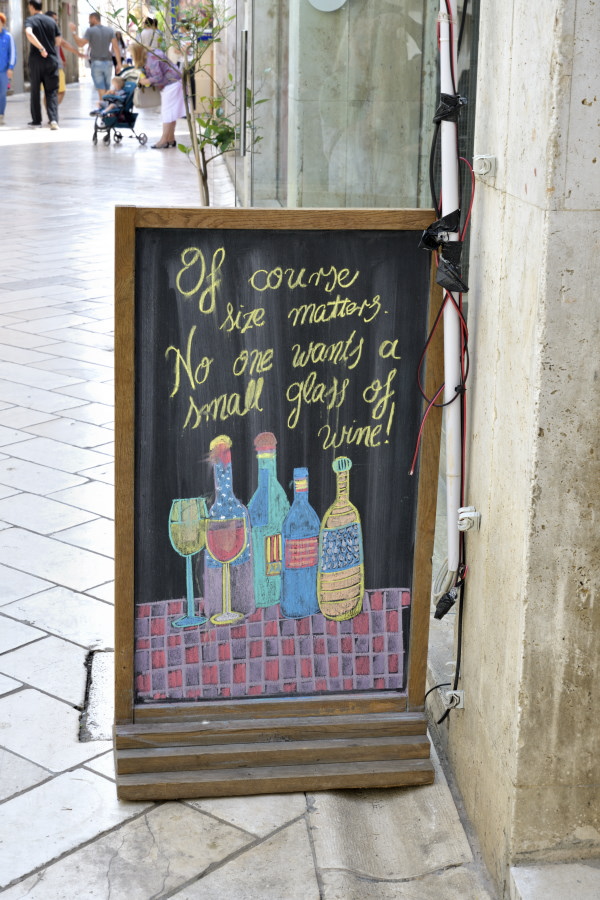 Of course
size matters.
No one wants a
small glass of
wine!